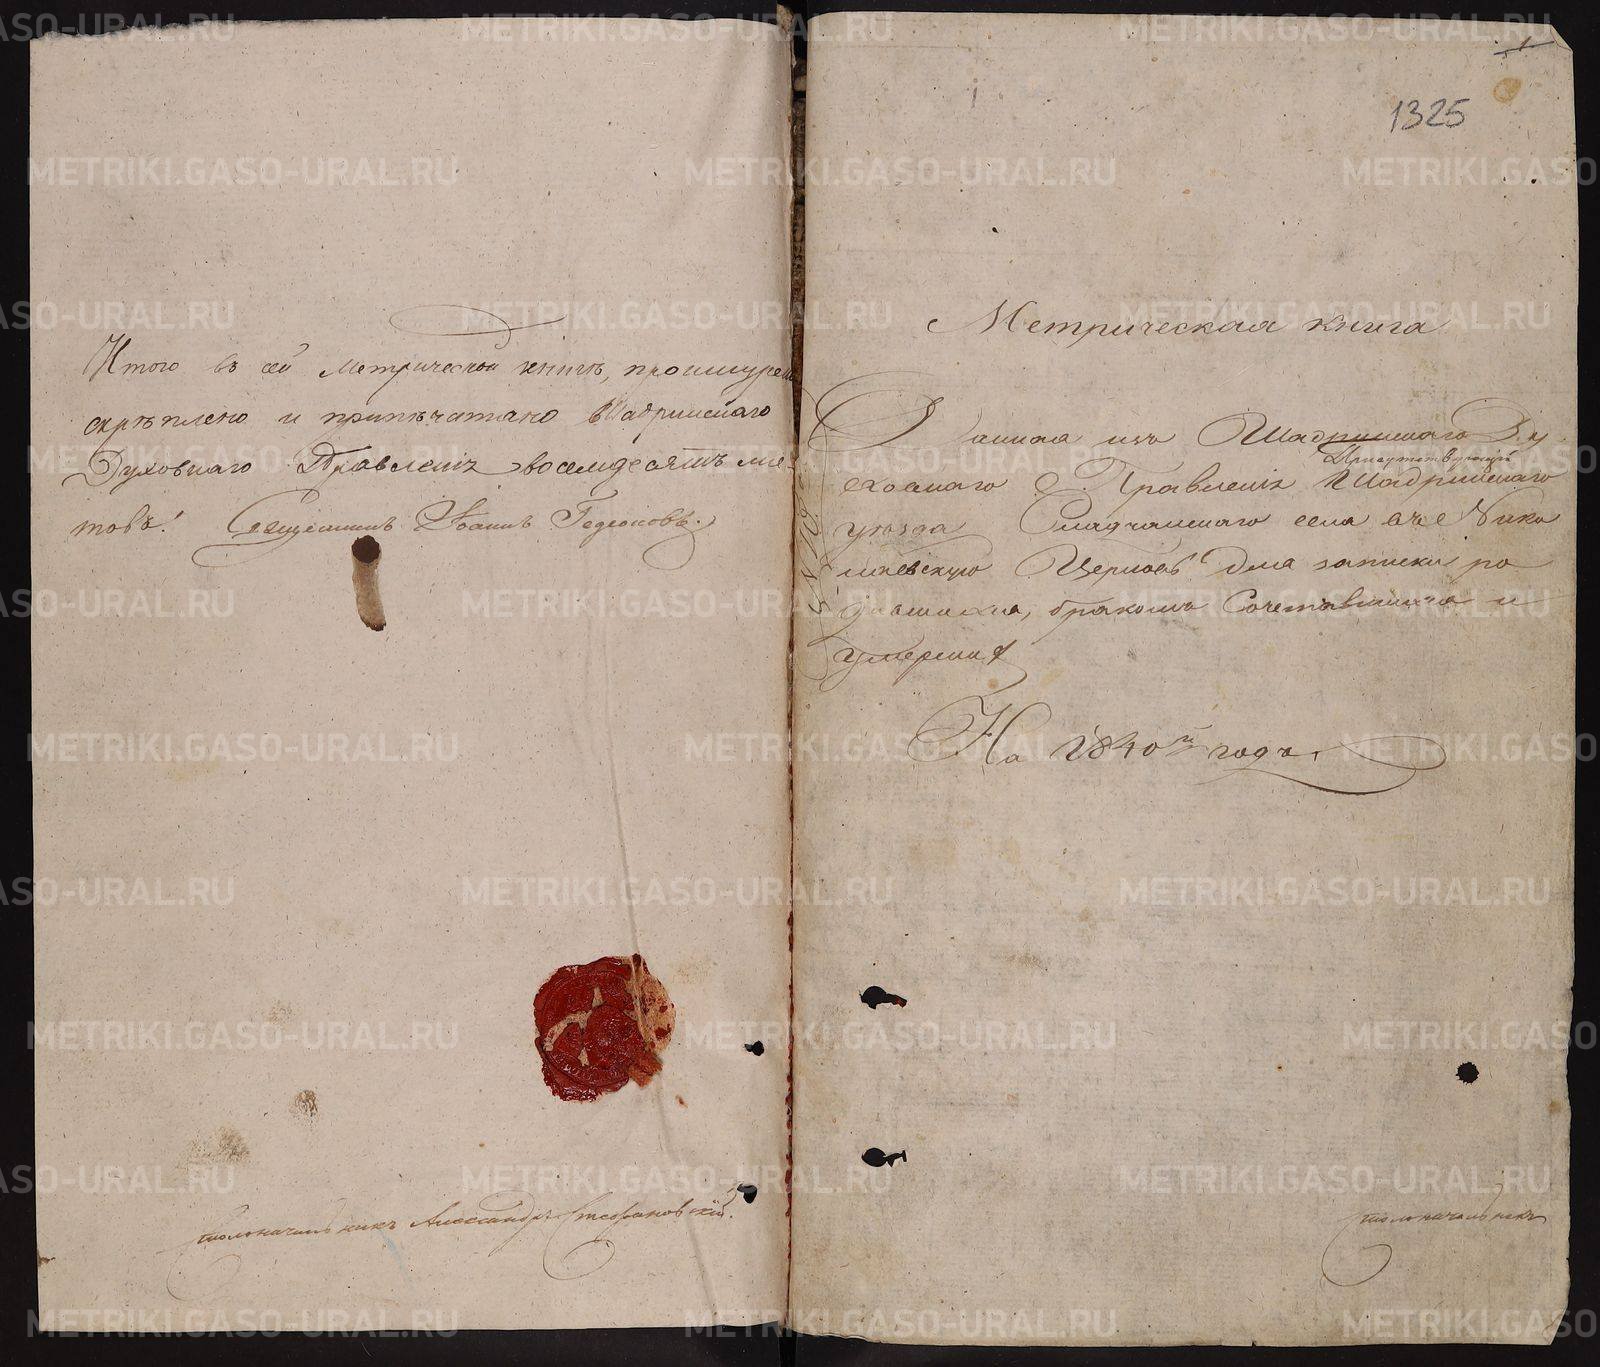 Итого въ сей метрической книгѣ, прошнурено
скрѣплено и припѣчатано Шадринскаго
Духовнаго Правленія восемдесятъ лис
товъ! Священникъ Іоаннъ Гедеоновъ.
Столоначальникъ Александръ Стефановскій.
1
1325
Метрическая книга
Данная изъ Шадринскаго Ду
Присутствующій
ховнаго Правленія Шадринскаго
уѣзда села въ Нико
лаевскую Церковь для записки ро
дившихся, бракомъ Сочетавшихся и
умершихъ
На 1840й годъ.
Столоначальникъ
METRIKI.GASO-URAL.RU